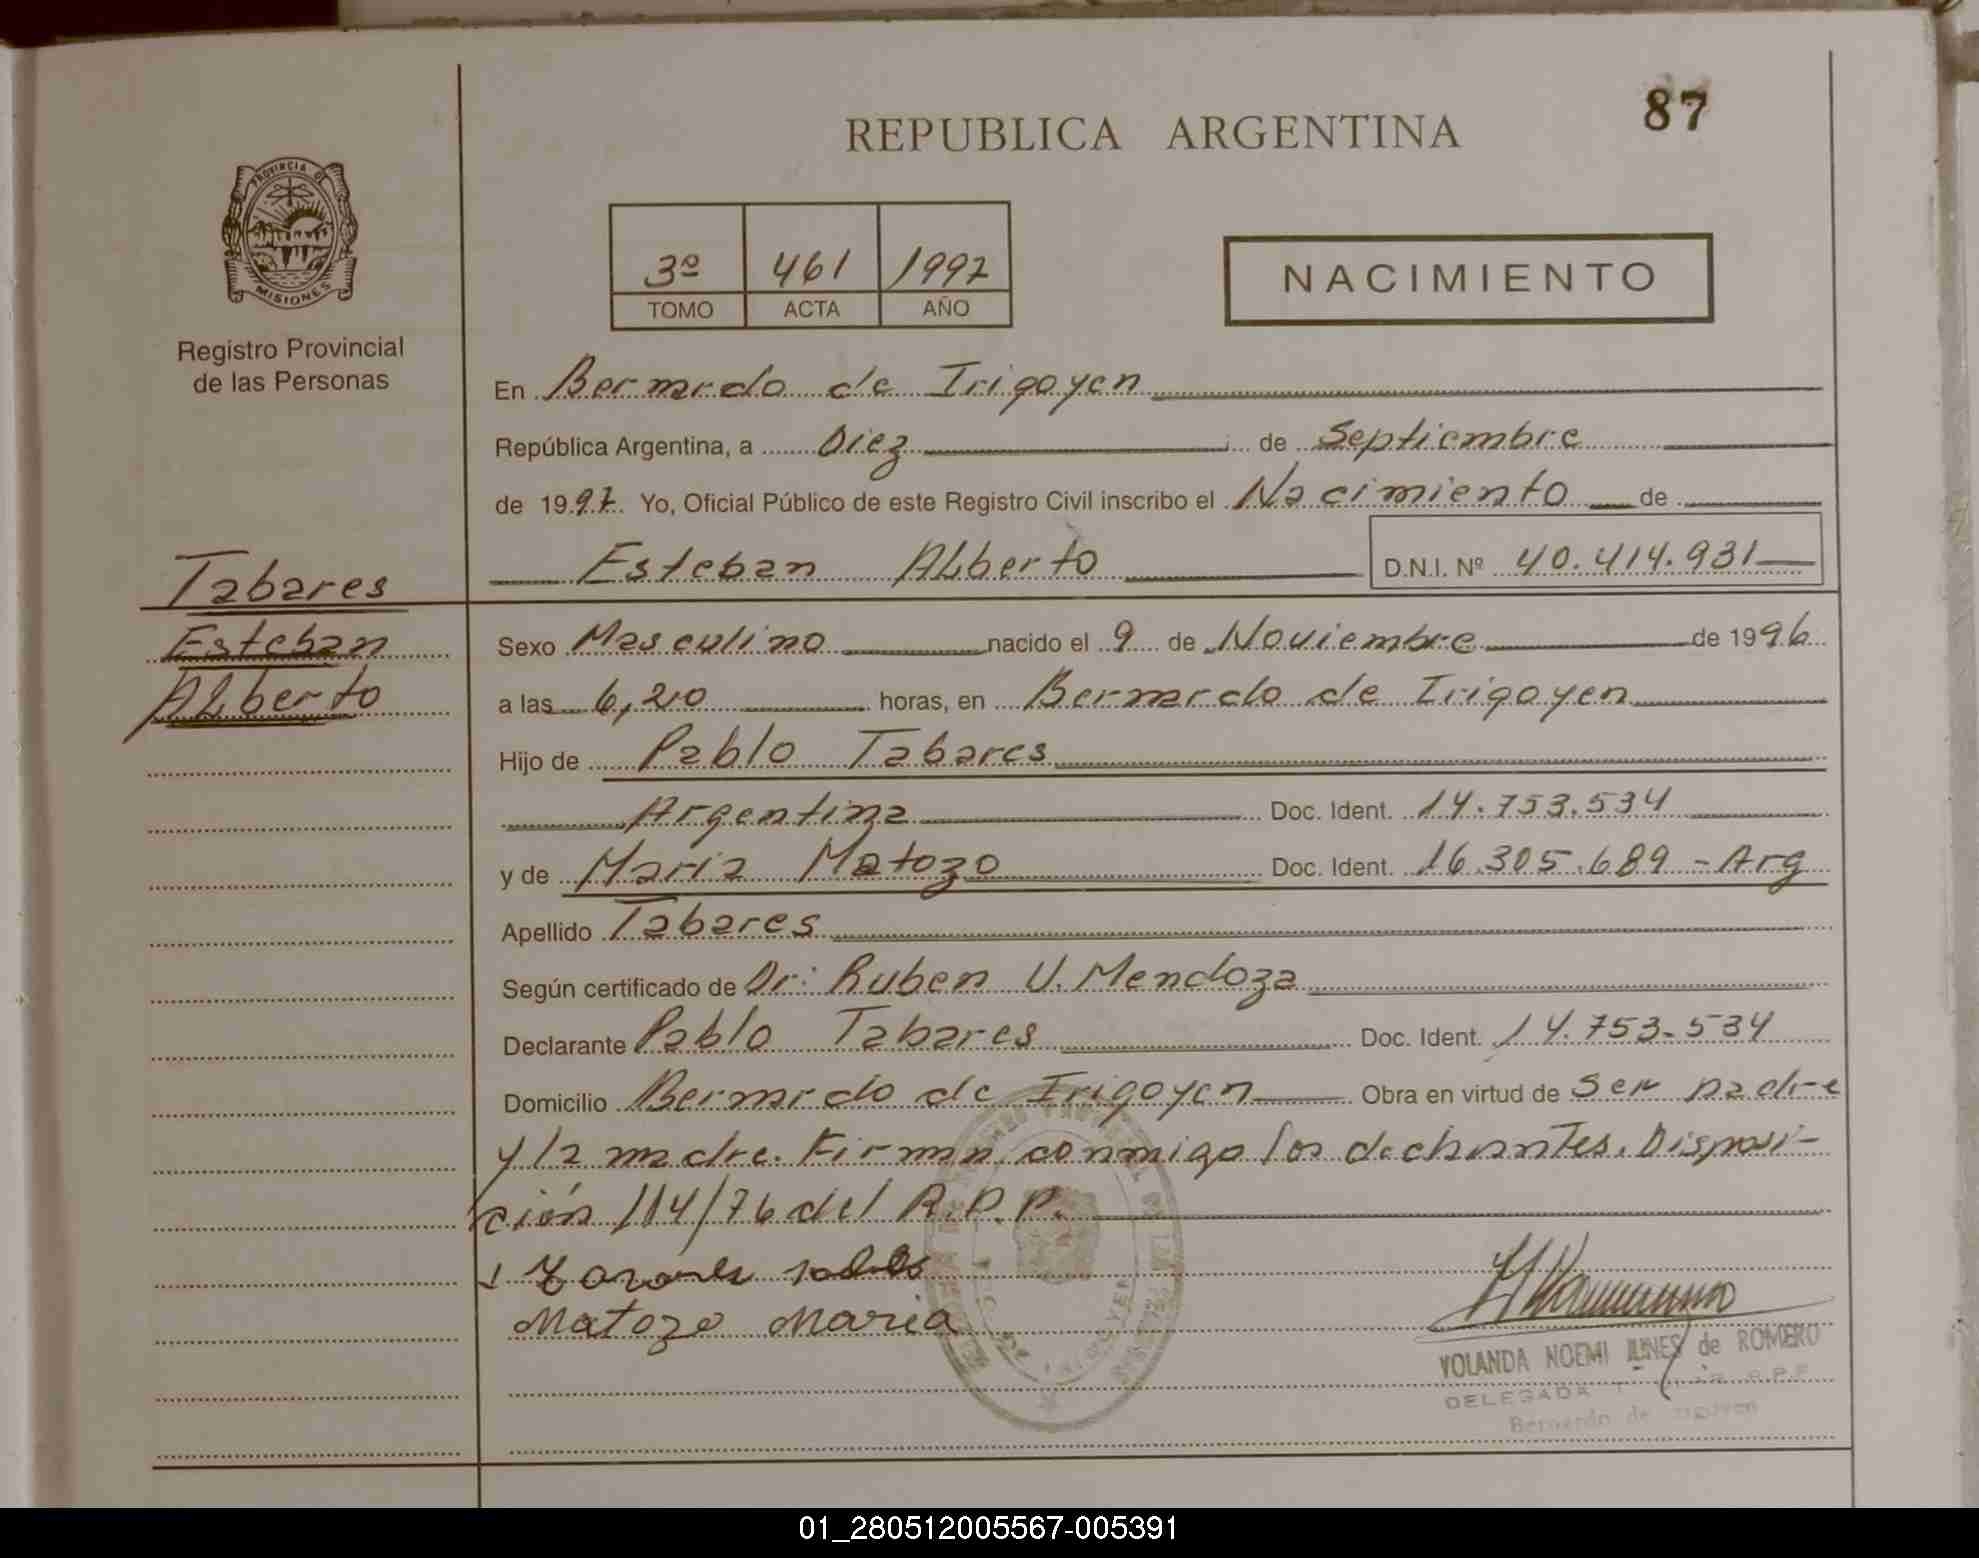 87
REPUBLICA ARGENTINA
PROVINCIA DE
MISIONES
Registro Provincial
de las Personas
3º 461 1997
TOMO ACTA AÑO
NACIMIENTO
En Bernardo de Irigoyen
República Argentina, a Diez de Septiembre
de 1997. Yo, Oficial Público de este Registro Civil inscribo el Nacimiento de
Esteban ALberto D.N.I. Nº 40.414.931
Tabares
Esteban
ALberto
Sexo Masculino nacido el 9 de Noviembre de 1996
a las 6,20 horas, en Bernardo de Irigoyen
Hijo de Pablo Tabares
Argentina Doc. Ident. 14.753.534
y de Maria Matozo Doc. Ident. 16.305.689 - Arg
Apellido Tabares
Según certificado de Dr: Ruben V. Mendoza
Declarante Pablo Tabares Doc. Ident. 14.753.534
Domicilio Bernardo de Irigoyen Obra en virtud de Ser padre
y la madre. Firman conmigo los declarantes. Disposi-
ción 114/76 del R.P.P.
Matozo Maria
YOLANDA NOEMI de ROMERO
DELEGADA R.P.P.
Bernardo de Irigoyen
01_280512005567-005391